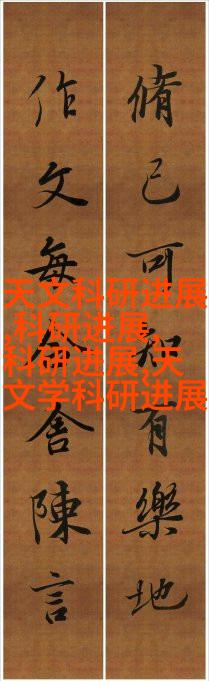 脩己可知有樂地
作文每舍陳言
天文科研进展
,科研进展,
科研进展,天
文学科研进展